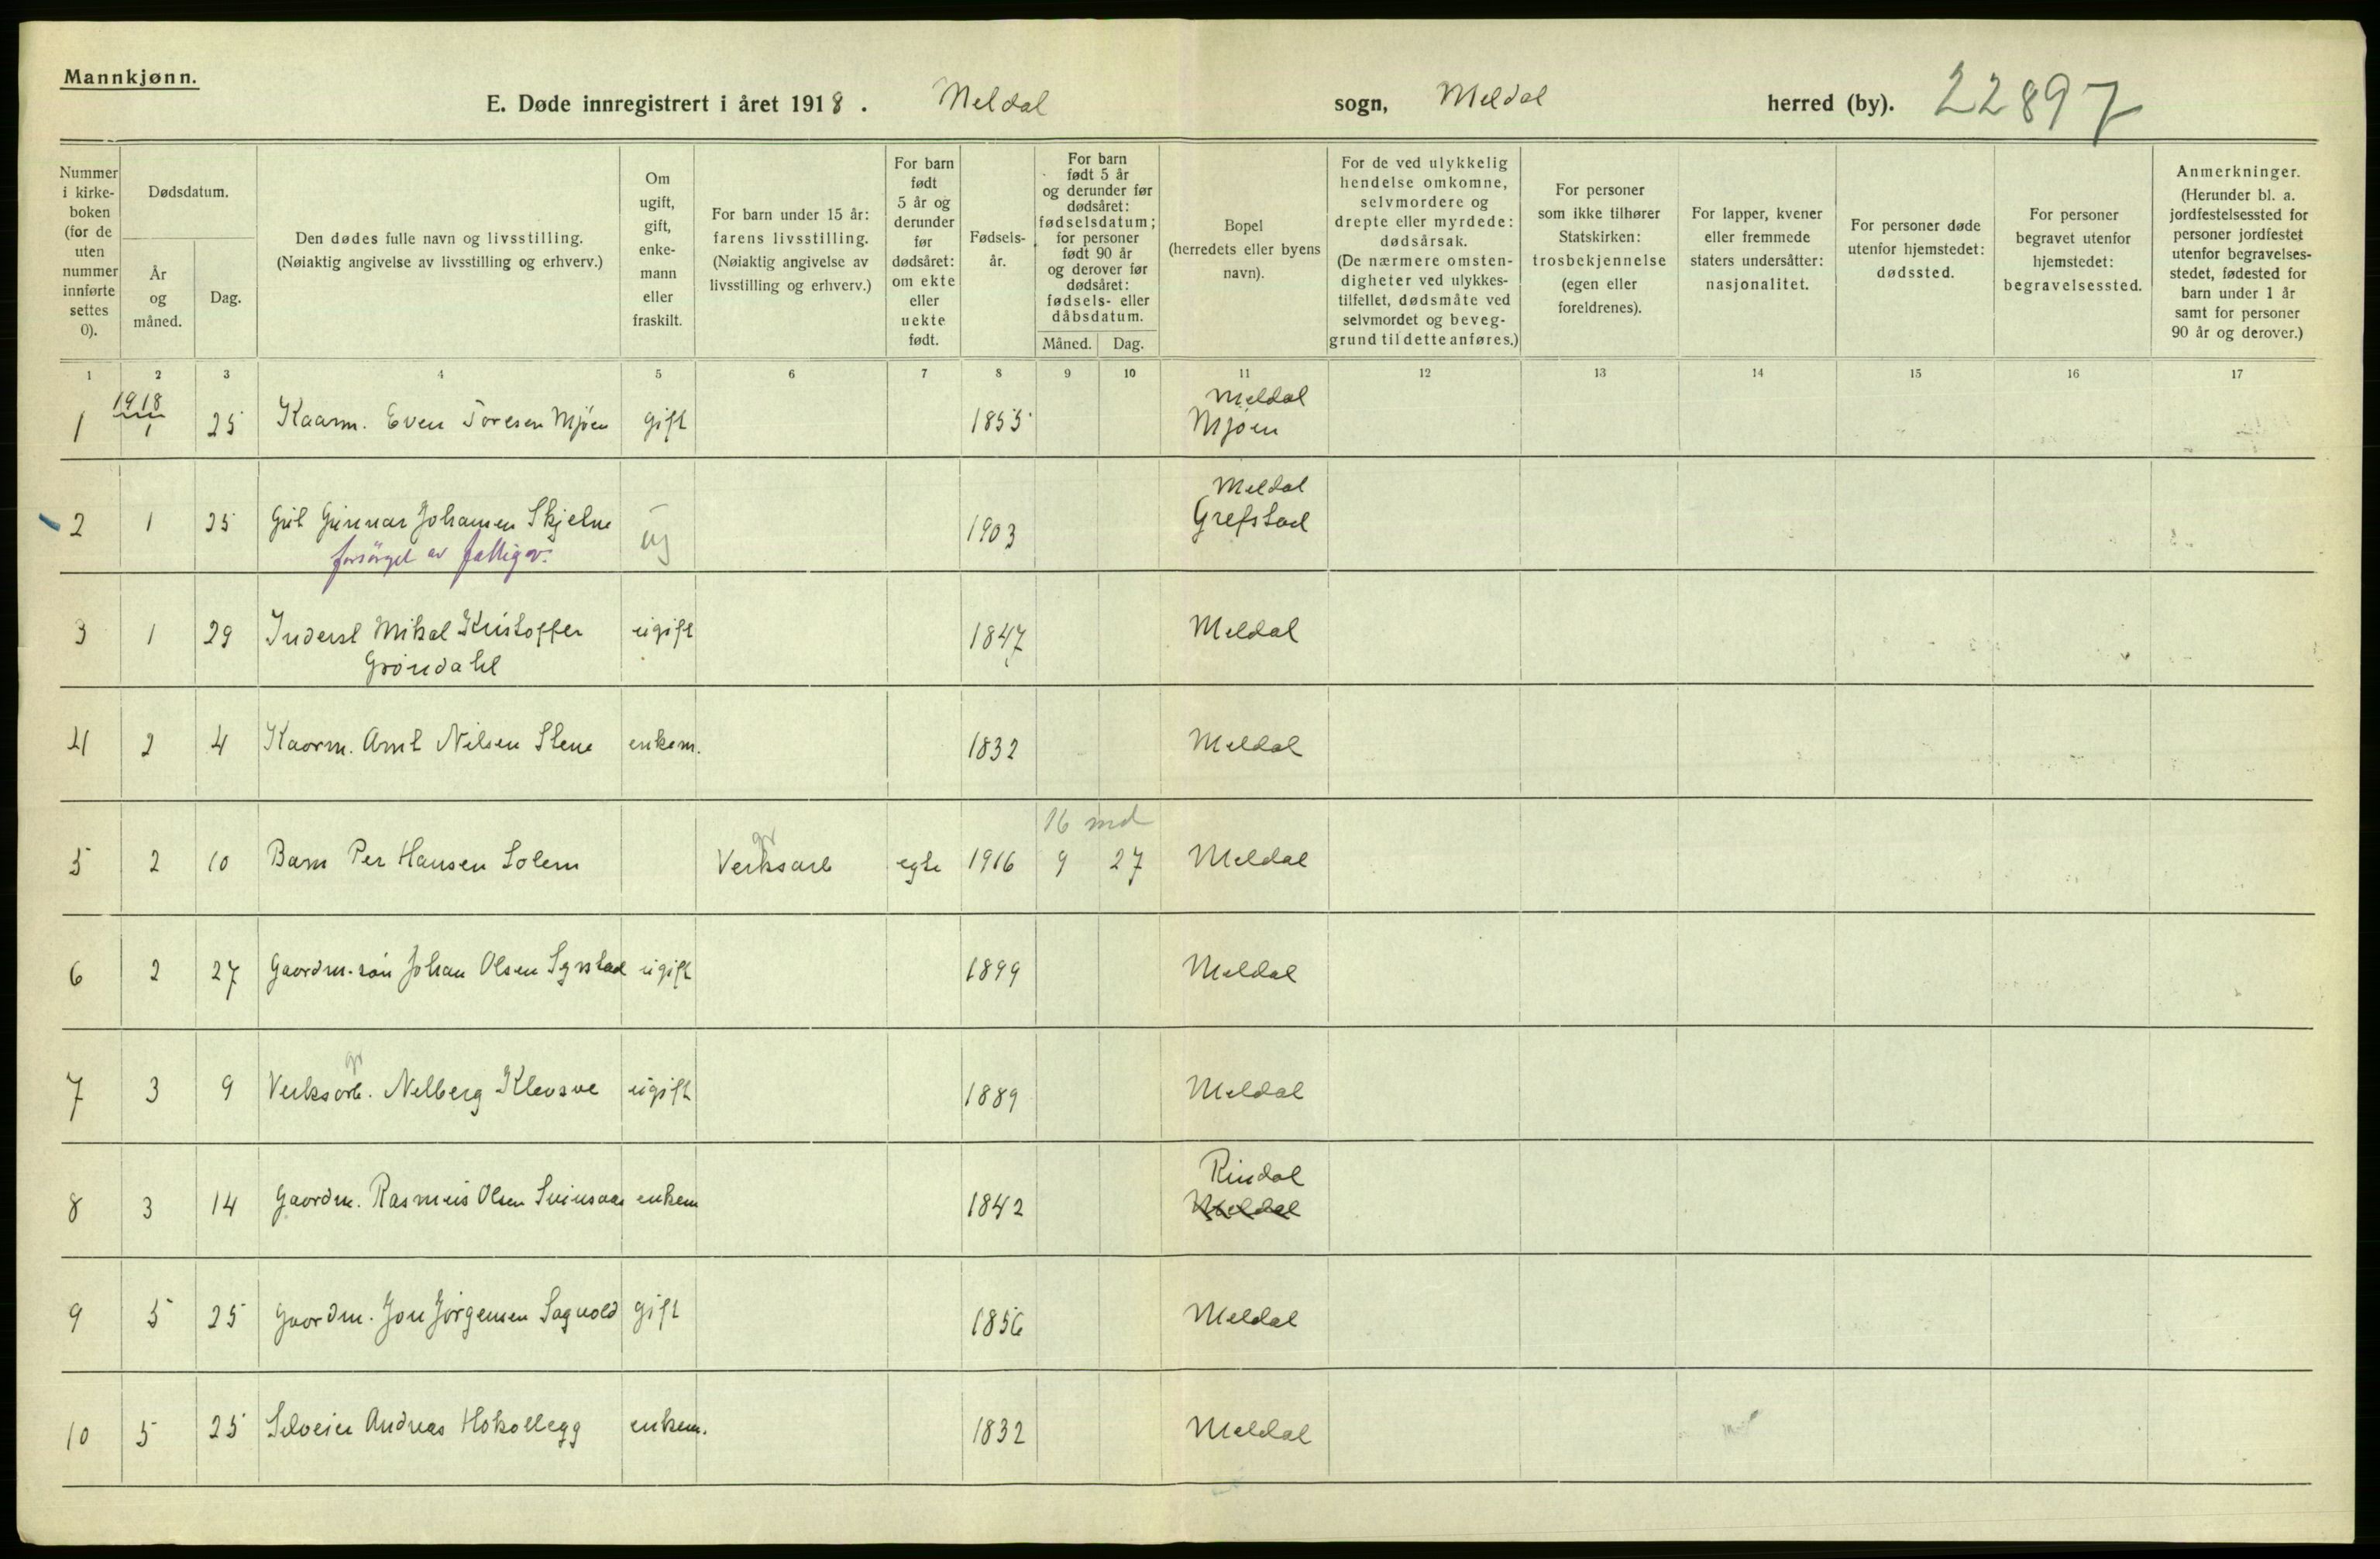 Mannkjønn.
E. Døde innregistrert i året 1918. Meldal sogn, Meldal herred (by). 22897
Nummer i kirke-boken (for de uten nummer innførte settes 0).
Dødsdatum.
År og måned.
Dag.
Den dødes fulle navn og livsstilling. (Nøiaktig angivelse av livsstilling og erhverv.)
Om ugift, gift, enke-mann eller fraskilt.
For barn under 15 år: farens livsstilling. (Nøiaktig angivelse av livsstilling og erhverv.)
For barn født 5 år og derunder før dødsåret: om ekte eller uekte født.
Fødsels-år.
For barn født 5 år og derunder før dødsåret: fødselsdatum; for personer født 90 år og derover før dødsåret: fødsels- eller dåbsdatum.
Måned. Dag.
Bopel (herredets eller byens navn).
For de ved ulykkelig hendelse omkomne, selvmordere og drepte eller myrdede: dødsårsak. (De nærmere omsten-digheter ved ulykkes-tilfellet, dødsmåte ved selvmordet og beveg-grund til dette anføres.)
For personer som ikke tilhører Statskirken: trosbekjennelse (egen eller foreldrenes).
For lapper, kvener eller fremmede staters undersåtter: nasjonalitet.
For personer døde utenfor hjemstedet: dødssted.
For personer begravet utenfor hjemstedet: begravelsessted.
Anmerkninger. (Herunder bl. a. jordfestelsessted for personer jordfestet utenfor begravelses-stedet, fødested for barn under 1 år samt for personer 90 år og derover.)
1 2 3 4 5 6 7 8 9 10 11 12 13 14 15 16 17
1918 Meldal
1 1 25 Kaarm. Even Toresen Mjøen gift 1855 Mjøen
Meldal
2 1 25 Gut Gunnar Johansen Skjelne ug 1903 Grefstad
forsörget av fattigv.
3 1 29 Inderst Mikal Kristoffer ugift 1847 Meldal
Gröndahl
4 2 4 Kaarm. Arnt Nilsen Stene enkem. 1832 Meldal
gr 16 md
5 2 10 Barn Per Hansen Solem Verksarb egte 1916 9 27 Meldal
6 2 27 Gaardm. sön Johan Olsen Syrstad ugift 1899 Meldal
gr
7 3 9 Verksarb. Nelberg Klevsve ugift 1889 Meldal
Rindal
8 3 14 Gaardm. Rasmus Olsen Svinsaas enkem 1842 Meldal
9 5 25 Gaardm. Jon Jörgensen Sagvold gift 1856 Meldal
10 5 25 Selveier Andreas Hokollegg enkem. 1832 Meldal